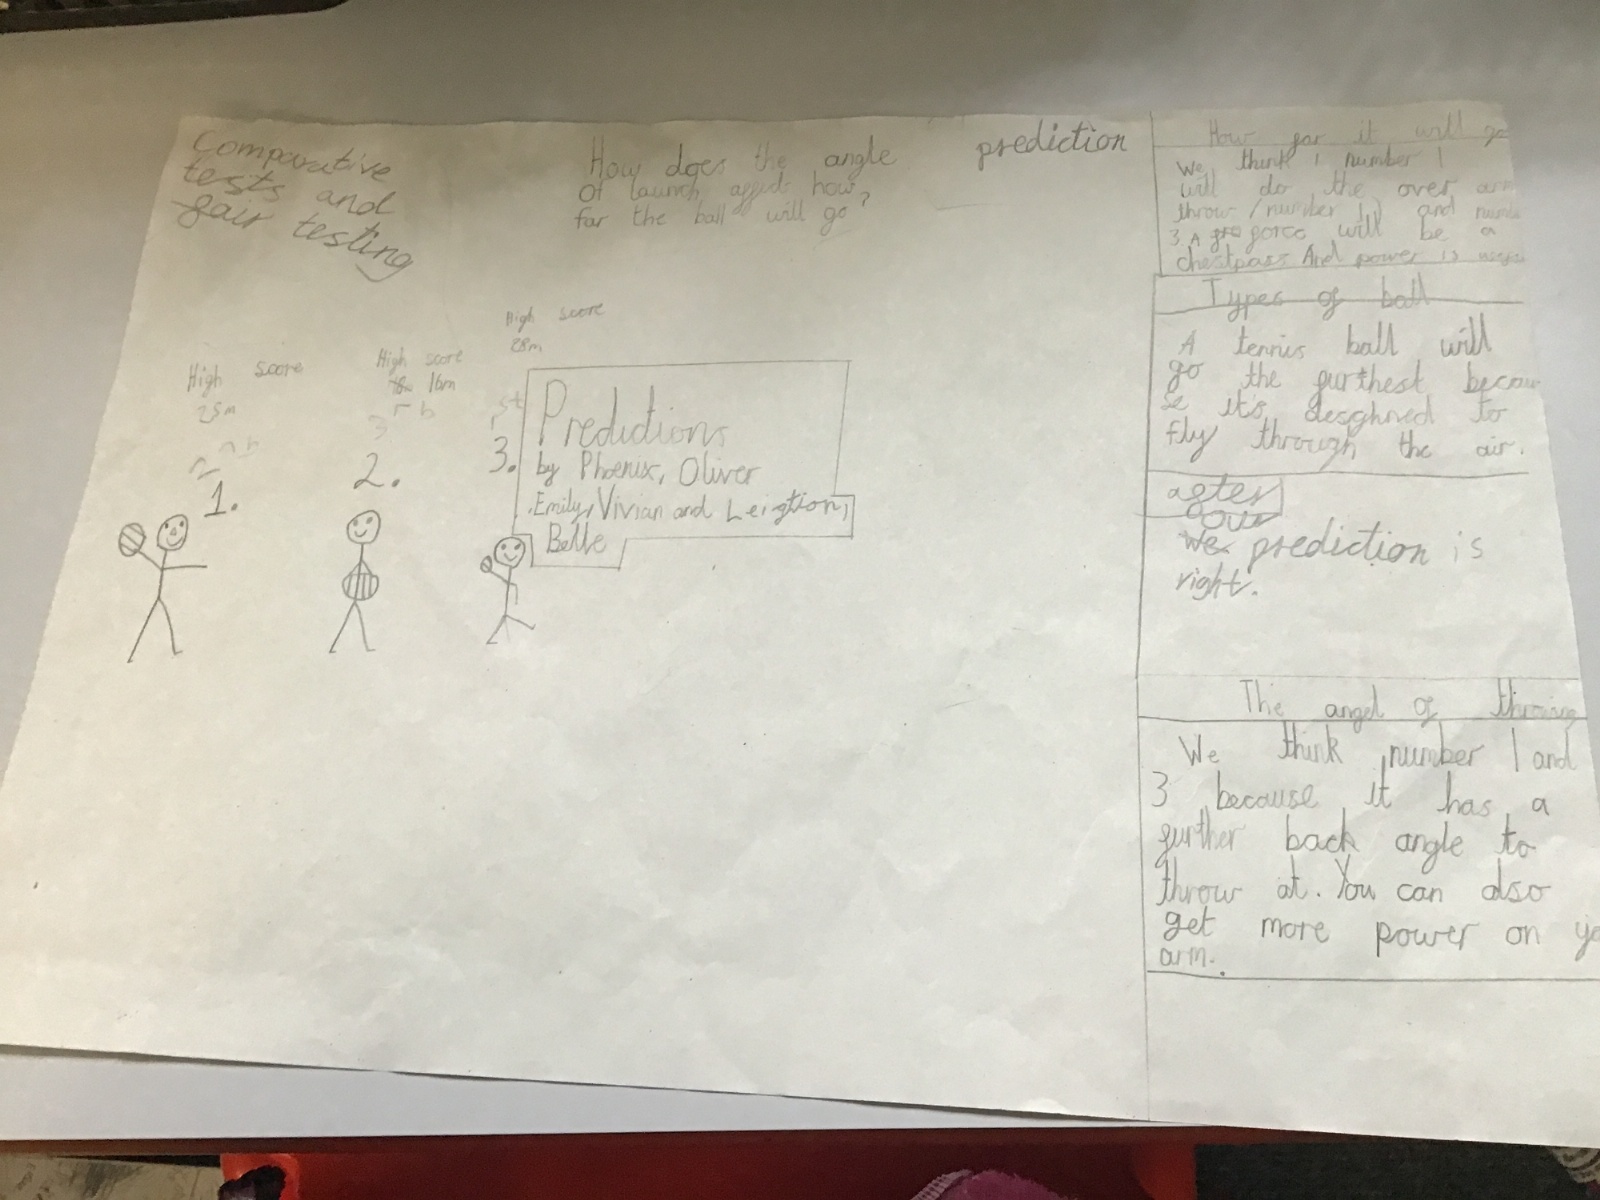 Comparative
tests and
fair testing
How does the angle
of launch affect how
far the ball will go?
prediction
High score
25m
2nb
1.
High score
16m
3rb
2.
High score
28m
1st
3.
Predictions
by Phoenix, Oliver
Emily, Vivian and Leigtion,
Belle
How far it will go
We think number 1
will do the over arm
throw (number 1) and
3. A force will be a
chestpass And power is
Types of ball
A tennis ball will
go the furthest becau
se it's desghned to
fly through the air.
after
our
We prediction is
right.
The angel of throwing
We think number 1 and
3 because it has a
further back angle to
throw at. You can also
get more power on yo
arm.